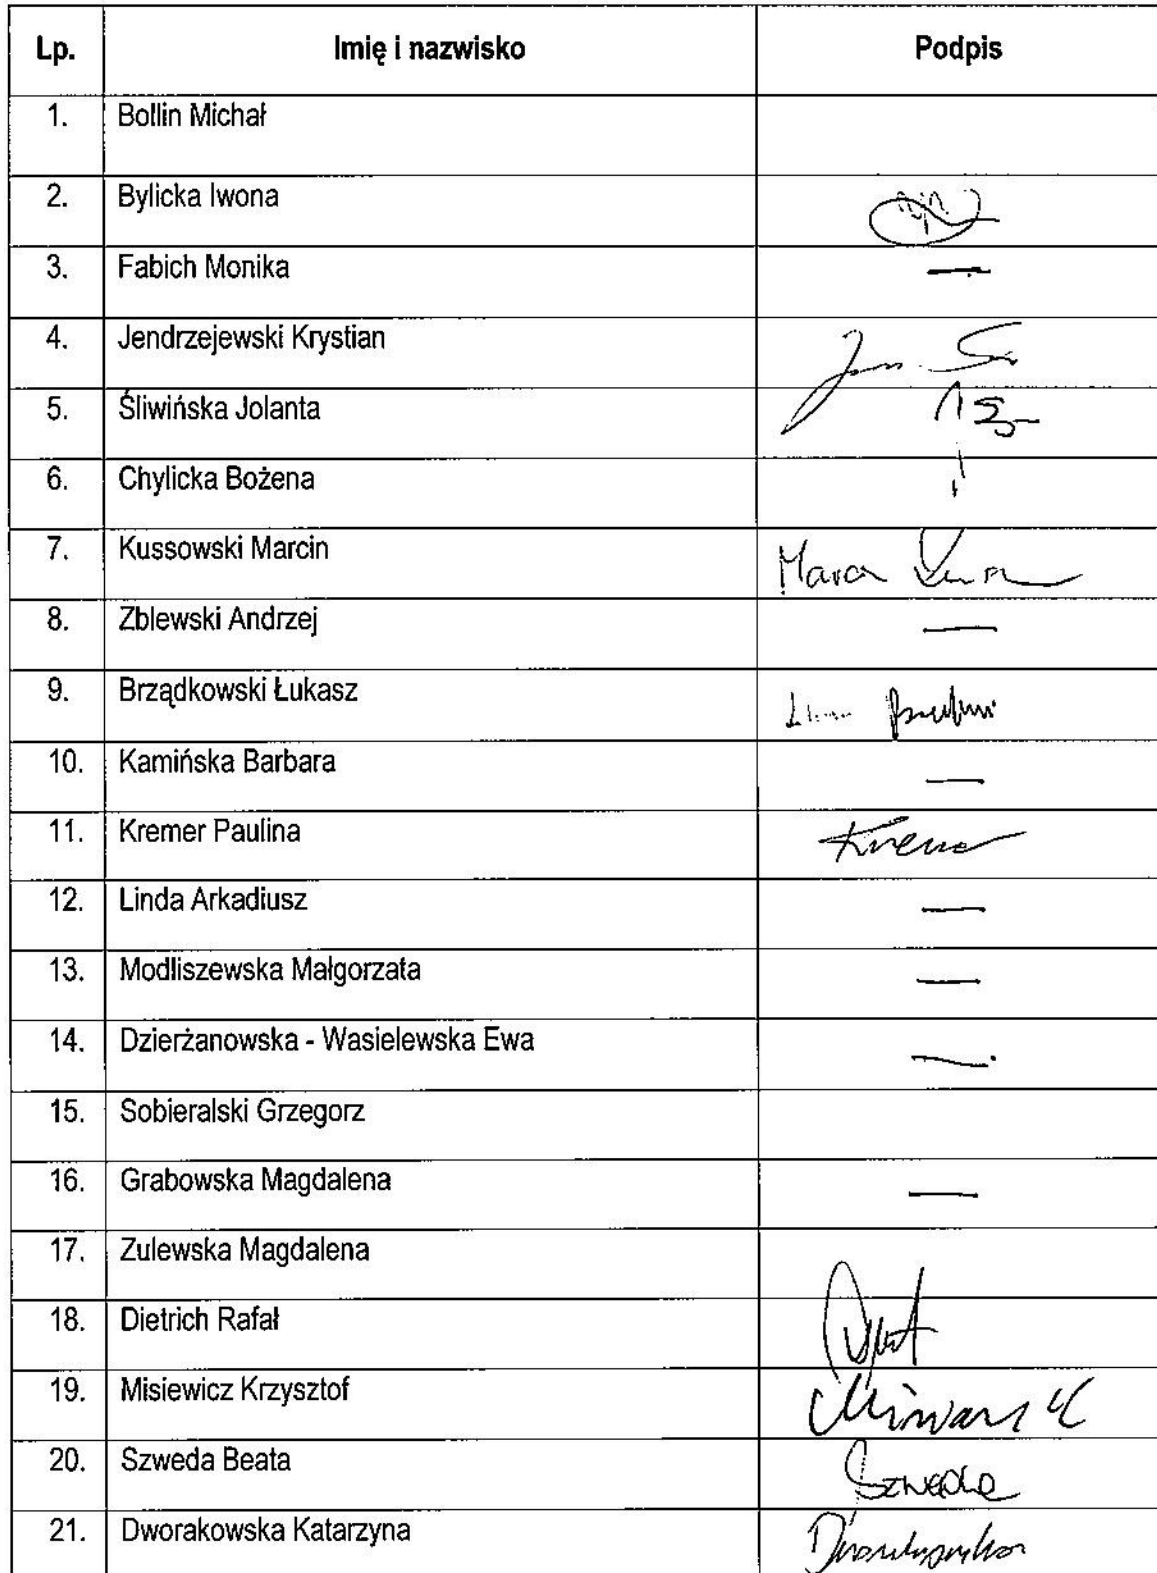 Lp. Imię i nazwisko Podpis
1. Bollin Michał
2. Bylicka Iwona
3. Fabich Monika —
4. Jendrzejewski Krystian
5. Śliwińska Jolanta
6. Chylicka Bożena
7. Kussowski Marcin
8. Zblewski Andrzej —
9. Brządkowski Łukasz
10. Kamińska Barbara —
11. Kremer Paulina
12. Linda Arkadiusz —
13. Modliszewska Małgorzata —
14. Dzierżanowska - Wasielewska Ewa —
15. Sobieralski Grzegorz
16. Grabowska Magdalena —
17. Zulewska Magdalena
18. Dietrich Rafał
19. Misiewicz Krzysztof
20. Szweda Beata Szweda
21. Dworakowska Katarzyna